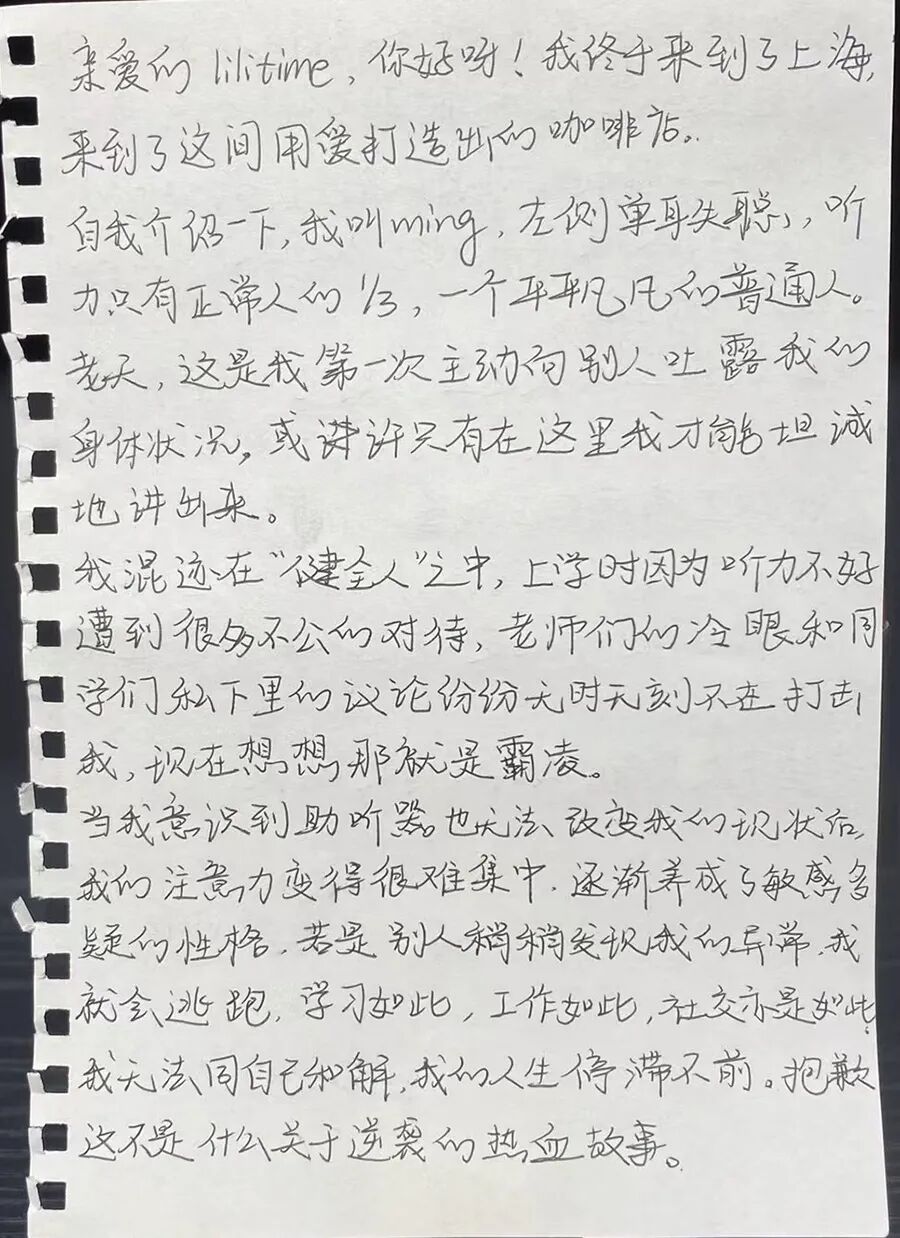 亲爱的 lilitime，你好呀！我终于来到了上海，
来到了这间用爱打造出的咖啡店。
自我介绍一下，我叫ming，左侧单耳失聪，听
力只有正常人的1/3，一个平平凡凡的普通人。
老天，这是我第一次主动向别人吐露我的
身体状况，或讲许只有在这里我才能坦诚
地讲出来。
我混迹在“健全人”之中，上学时因为听力不好
遭到很多不公的对待，老师们的冷眼和同
学们私下里的议论纷纷无时无刻不在打击
我，现在想想那就是霸凌。
当我意识到助听器也无法改变我的现状后，
我的注意力变得很难集中，逐渐养成了敏感多
疑的性格，若是别人稍稍发现我的异常，我
就会逃跑，学习如此，工作如此，社交亦是如此，
我无法同自己和解，我的人生停滞不前。抱歉
这不是什么关于逆袭的热血故事。